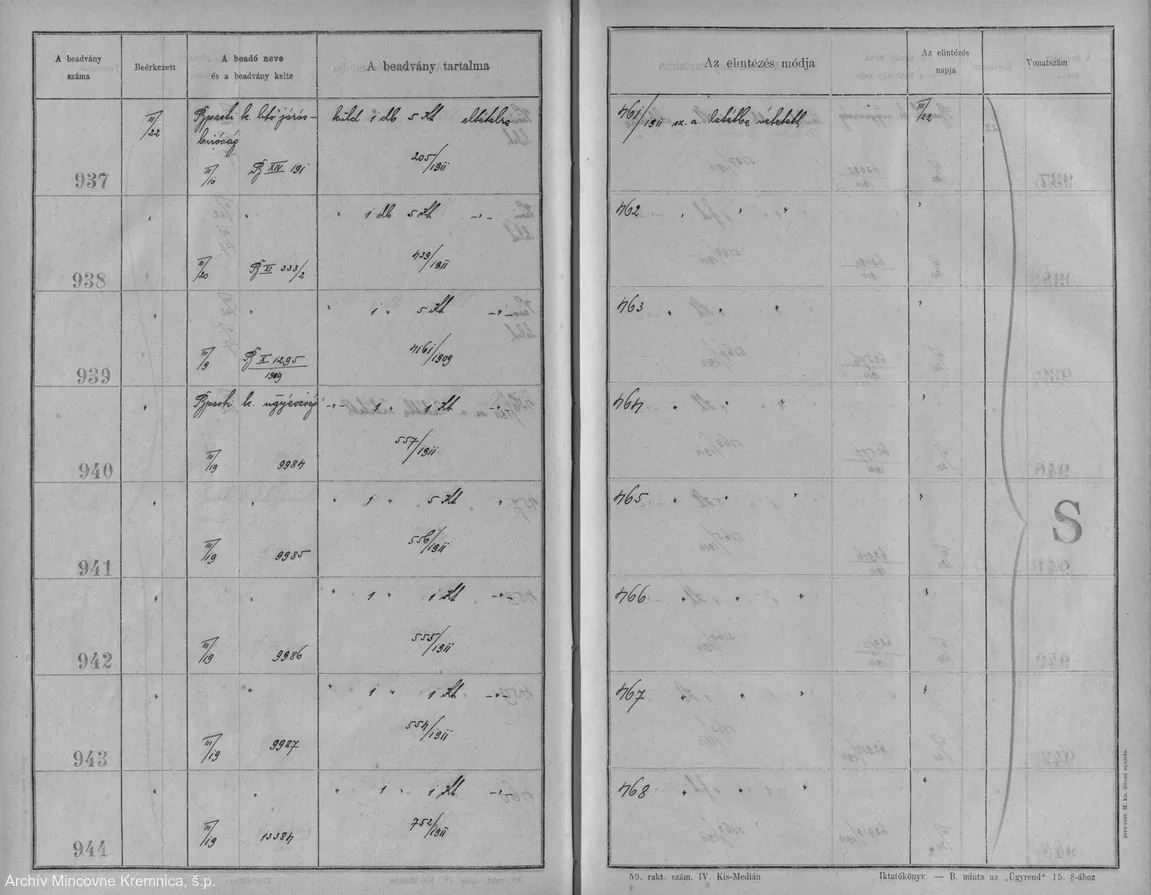 A beadvány száma
Beérkezett
A beadó neve és a beadvány kelte
A beadvány tartalma
Az elintézés módja
Az elintézés napja
Vonatszám
937
III/22
küld 1 db 5 Kt
III/10
XIV 191
205/1911
461/1911 sz. a. letétbe vétetett
III/22
938
" 1 db 5 Kt -"-
III/20
XI 333/2
439/1911
462 " " "
939
" 1 " 5 Kt -"-
III/9
X 1295/1909
4161/1909
463 " " "
940
Bpesti k. ügyészség
-"- 1 " 1 Kt -"-
III/19 9984
557/1911
464 " " "
941
" 1 " 5 Kt "
III/19 9985
556/1911
465 " " "
S
942
" 1 " 1 Kt -"-
III/19 9986
555/1911
466 " " "
943
" 1 " 1 Kt -"-
III/19 9987
554/1911
467 " " "
944
" 1 " 1 Kt -"-
III/19 13384
752/1911
468 " " "
59. rakt. szám. IV. Kis-Medián
Iktatókönyv. — B. minta az „Ügyrend" 15. §-ához
Archív Mincovne Kremnica, š.p.